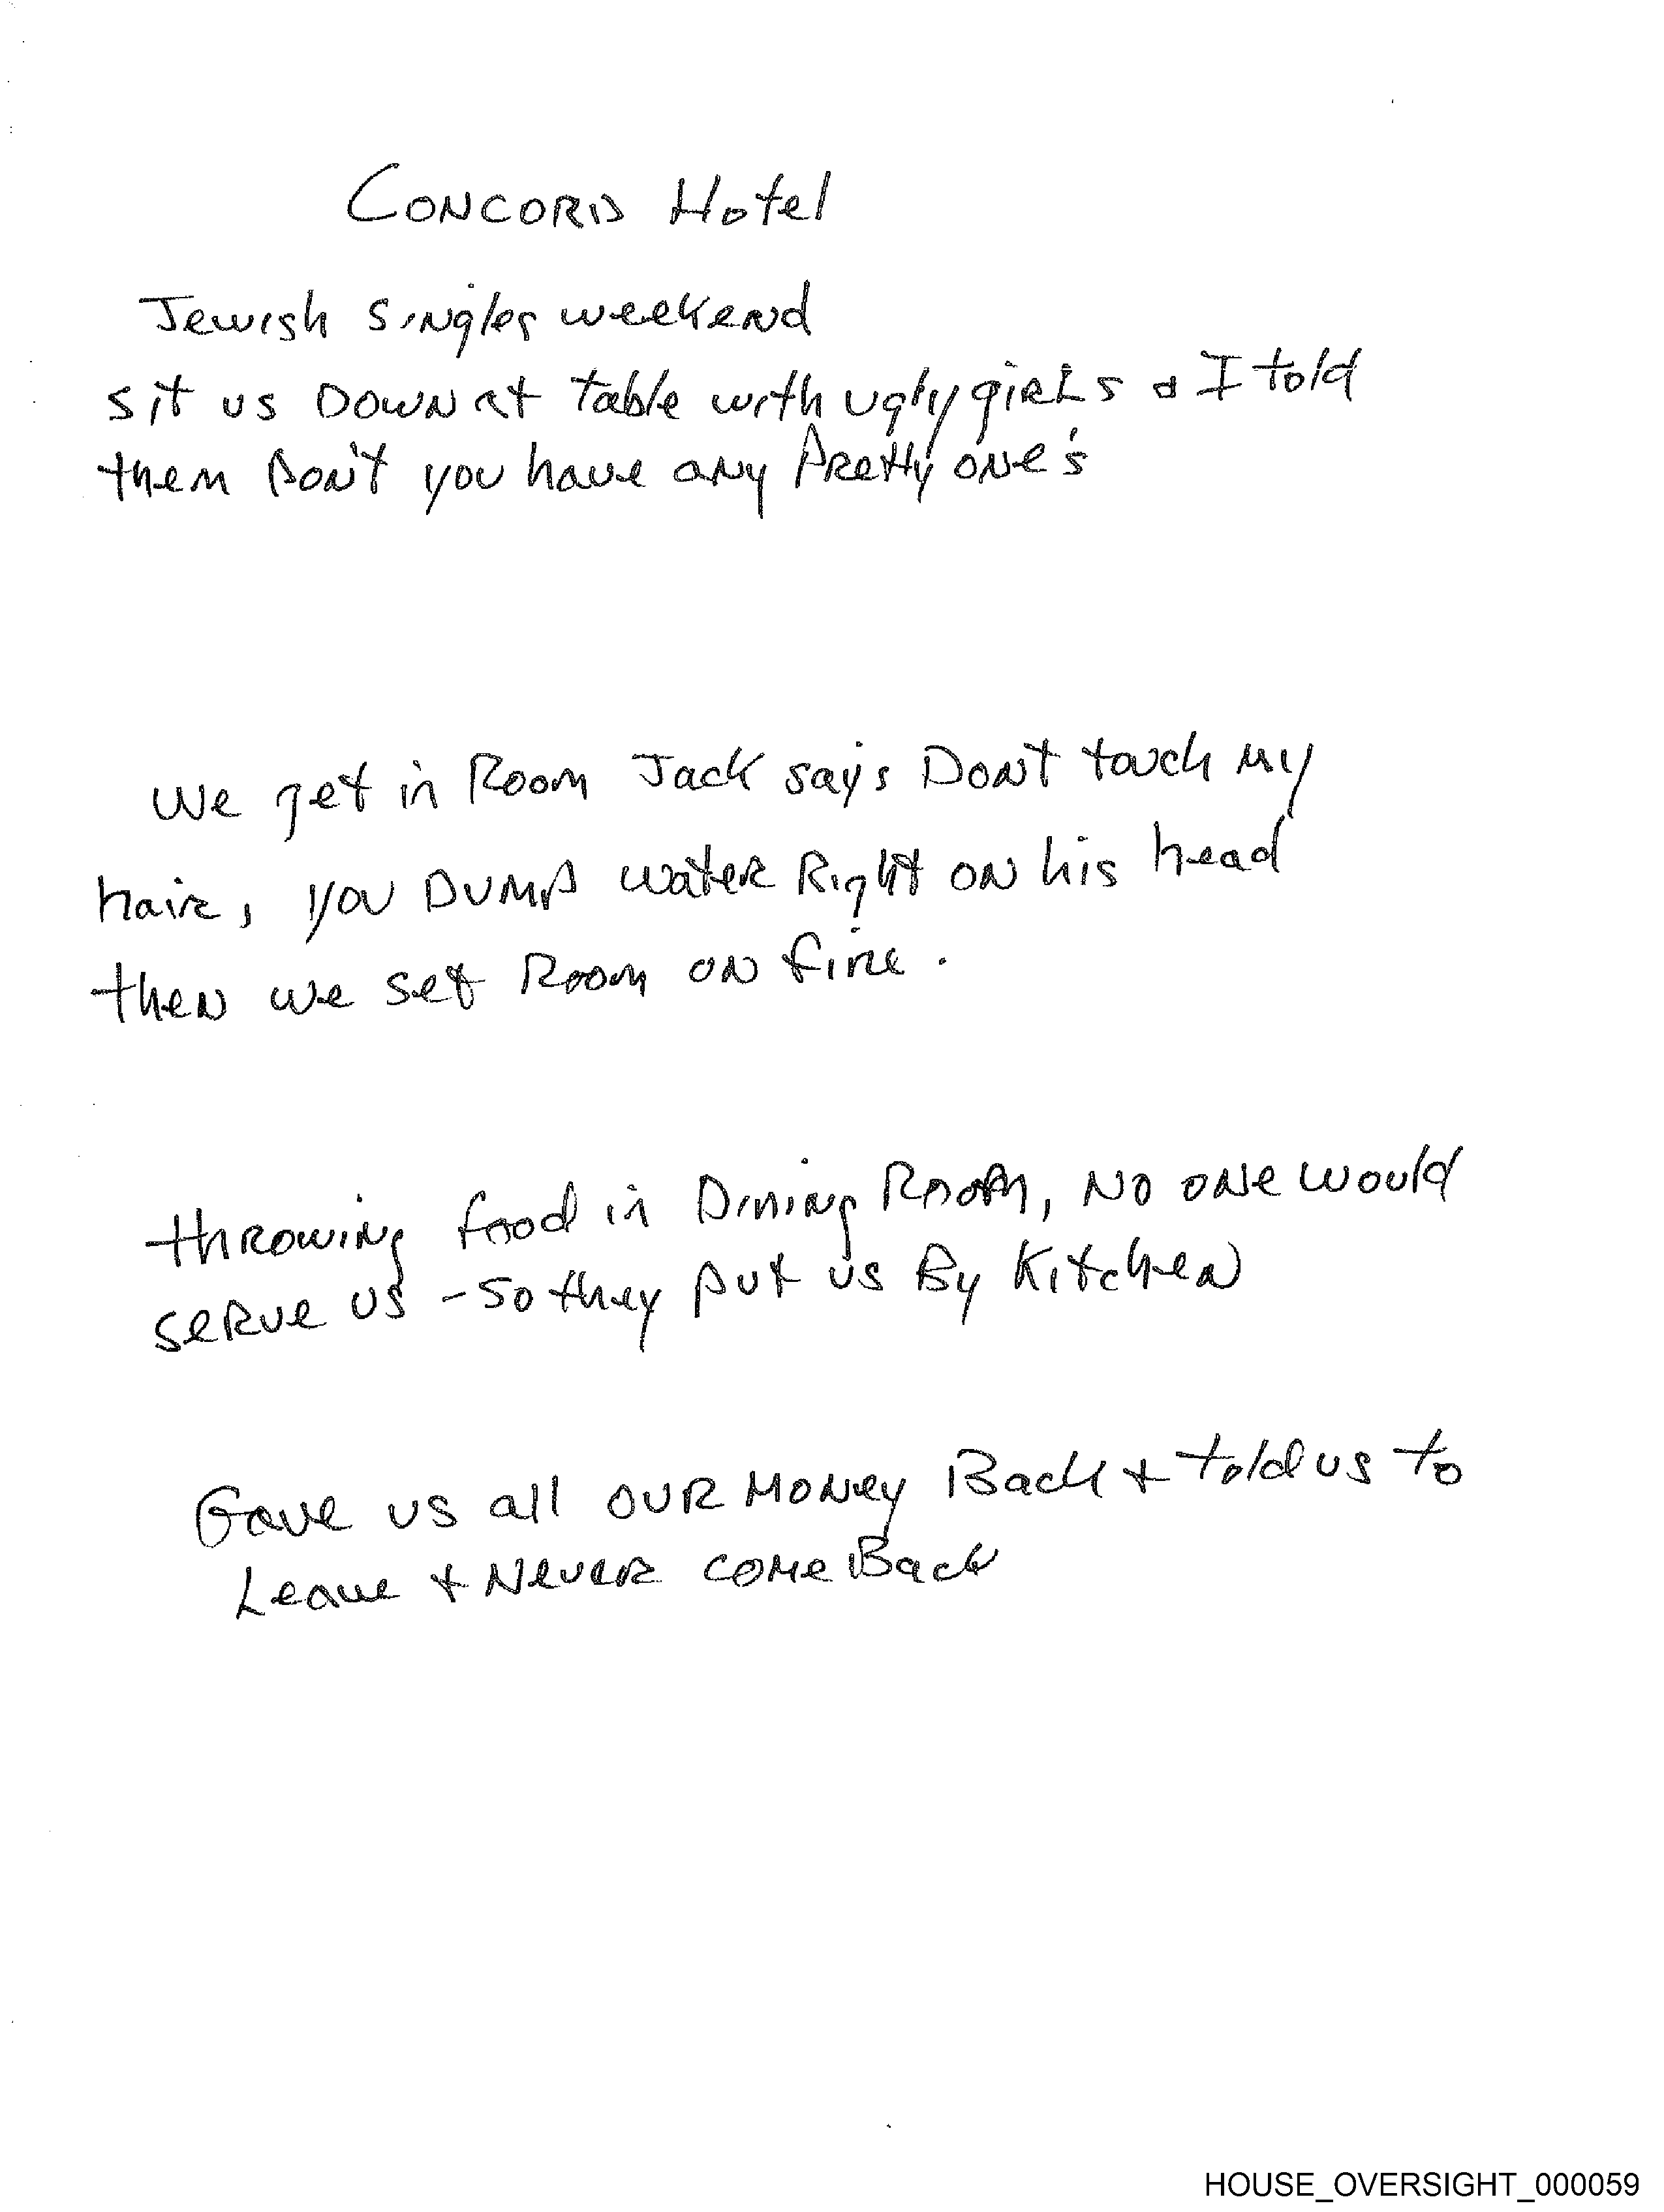 CONCORD Hotel
Jewish Singles weekend
sit us DOWN at table with ugly giRLs & I told
them Don't you have aNy PRetty oNe's
We get in Room Jack say's DoNt touch my
haiR, you DUMP wateR Right ON his head
theN we set Room ON fiRe.
thRowiNg food iN DiNiNg Room, NO ONe would
seRve us - so they put us By KitcheN
Gave us all OUR MONey Back & told us to
Leave & NeveR come Back
HOUSE_OVERSIGHT_000059